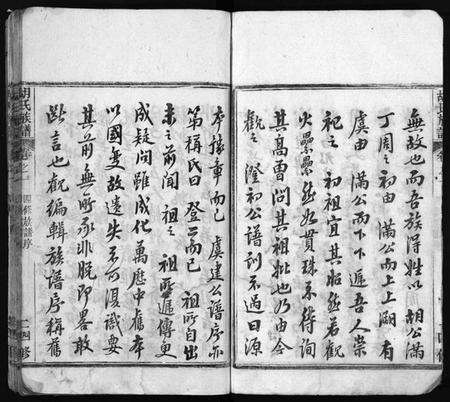 無故也而吾族得姓以胡公滿
丁周之初由滿公而上上溯有
虞由滿公而下下逮吾人崇
祀之祖宜其昭然若觀
火纍纍然如貫珠不待詢
其高曾問其祖批也乃由今
觀之澄初公譜訓不過曰源
本接章而已虞建公譜序亦
第稱氏曰登而已祖所自出
未之前聞祖之祖所遞傳更
成疑問雖成化萬歷中舊本
以國變故遺失不可復識要
其前無所承非脫即畧敢
斷言也觀編輯族譜序稱舊
胡氏族譜
卷之一
四修族譜序
二
四修